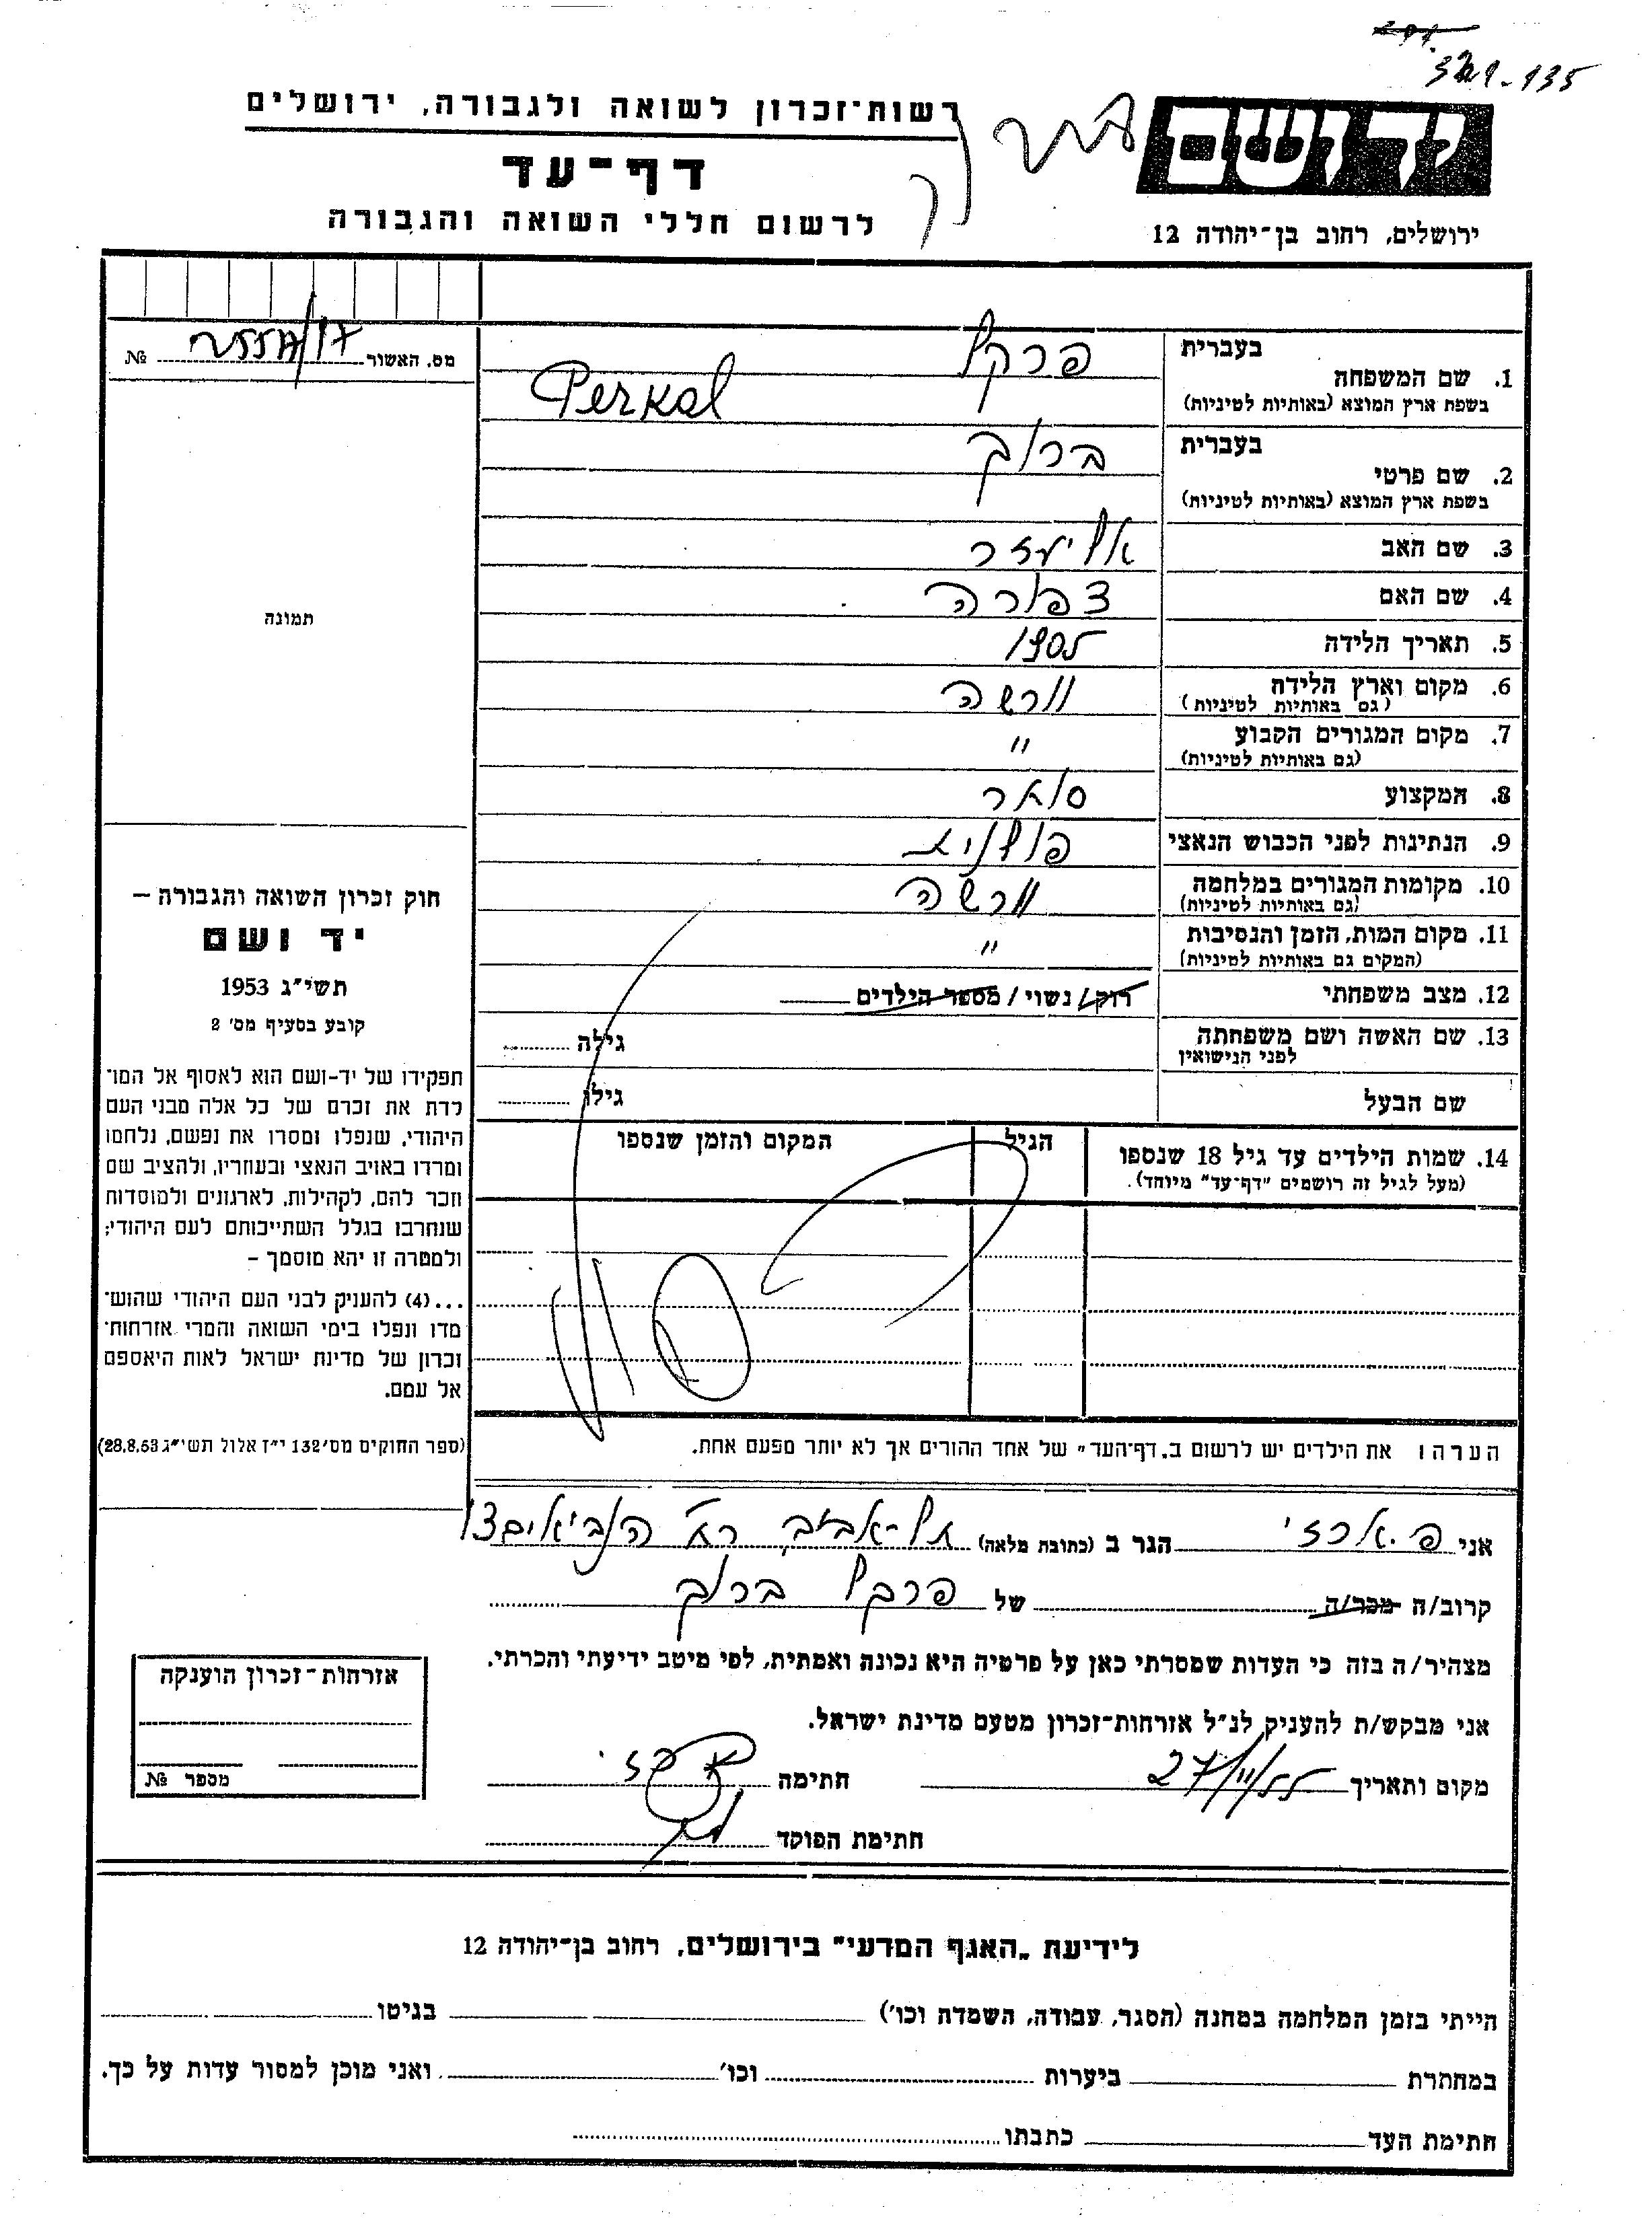 321-135
רשות־זכרון לשואה ולגבורה, ירושלים
יד ושם
דף־עד
לרשום חללי השואה והגבורה
ירושלים, רחוב בן־יהודה 12
מס. האשור №
1. שם המשפחה בעברית פרקל
בשפת ארץ המוצא (באותיות לטיניות) Perkal
2. שם פרטי בעברית ברוך
בשפת ארץ המוצא (באותיות לטיניות)
3. שם האב אליעזר
4. שם האם צפורה
תמונה
5. תאריך הלידה 1905
6. מקום וארץ הלידה וורשה
(גם באותיות לטיניות)
7. מקום המגורים הקבוע "
(גם באותיות לטיניות)
8. המקצוע סוחר
9. הנתינות לפני הכבוש הנאצי פולנית
10. מקומות המגורים במלחמה וורשה
(גם באותיות לטיניות)
11. מקום המות, הזמן והנסיבות "
(המקום גם באותיות לטיניות)
12. מצב משפחתי רוק/ נשוי/ מספר הילדים
13. שם האשה ושם משפחתה גילה
לפני הנישואין
שם הבעל גילו
14. שמות הילדים עד גיל 18 שנספו הגיל המקום והזמן שנספו
(מעל לגיל זה רושמים "דף־עד" מיוחד).
חוק זכרון השואה והגבורה –
יד ושם
תשי"ג 1953
קובע בסעיף מס' 2
תפקידו של יד-ושם הוא לאסוף אל המו־
לדת את זכרם של כל אלה מבני העם
היהודי, שנפלו ומסרו את נפשם, נלחמו
ומרדו באויב הנאצי ובעוזריו, ולהציב שם
וזכר להם, לקהילות, לארגונים ולמוסדות
שנחרבו בגלל השתייכותם לעם היהודי;
ולמטרה זו יהא מוסמך –
...(4) להעניק לבני העם היהודי שהוש־
מדו ונפלו בימי השואה והמרי אזרחות־
זכרון של מדינת ישראל לאות היאספם
אל עמם.
(ספר החוקים מס' 132 י"ז אלול תשי"ג 28.8.53)
הערה: את הילדים יש לרשום ב„דף־העד" של אחד ההורים אך לא יותר מפעם אחת.
אני פ. ארזי הגר ב (כתובת מלאה) תל-אביב רח' הנביאים
קרוב/ה מכר/ה של פרקל ברוך
מצהיר/ה בזה כי העדות שמסרתי כאן על פרטיה היא נכונה ואמתית, לפי מיטב ידיעתי והכרתי.
אני מבקש/ת להעניק לנ"ל אזרחות־זכרון מטעם מדינת ישראל.
מקום ותאריך 27/11/55 חתימה
חתימת הפוקד
אזרחות־זכרון הוענקה
מספר №
לידיעת „האגף המדעי" בירושלים, רחוב בן־יהודה 12
הייתי בזמן המלחמה במחנה (הסגר, עבודה, השמדה וכו') בגיטו
במחתרת ביערות וכו' ואני מוכן למסור עדות על כך.
חתימת העד כתבתו